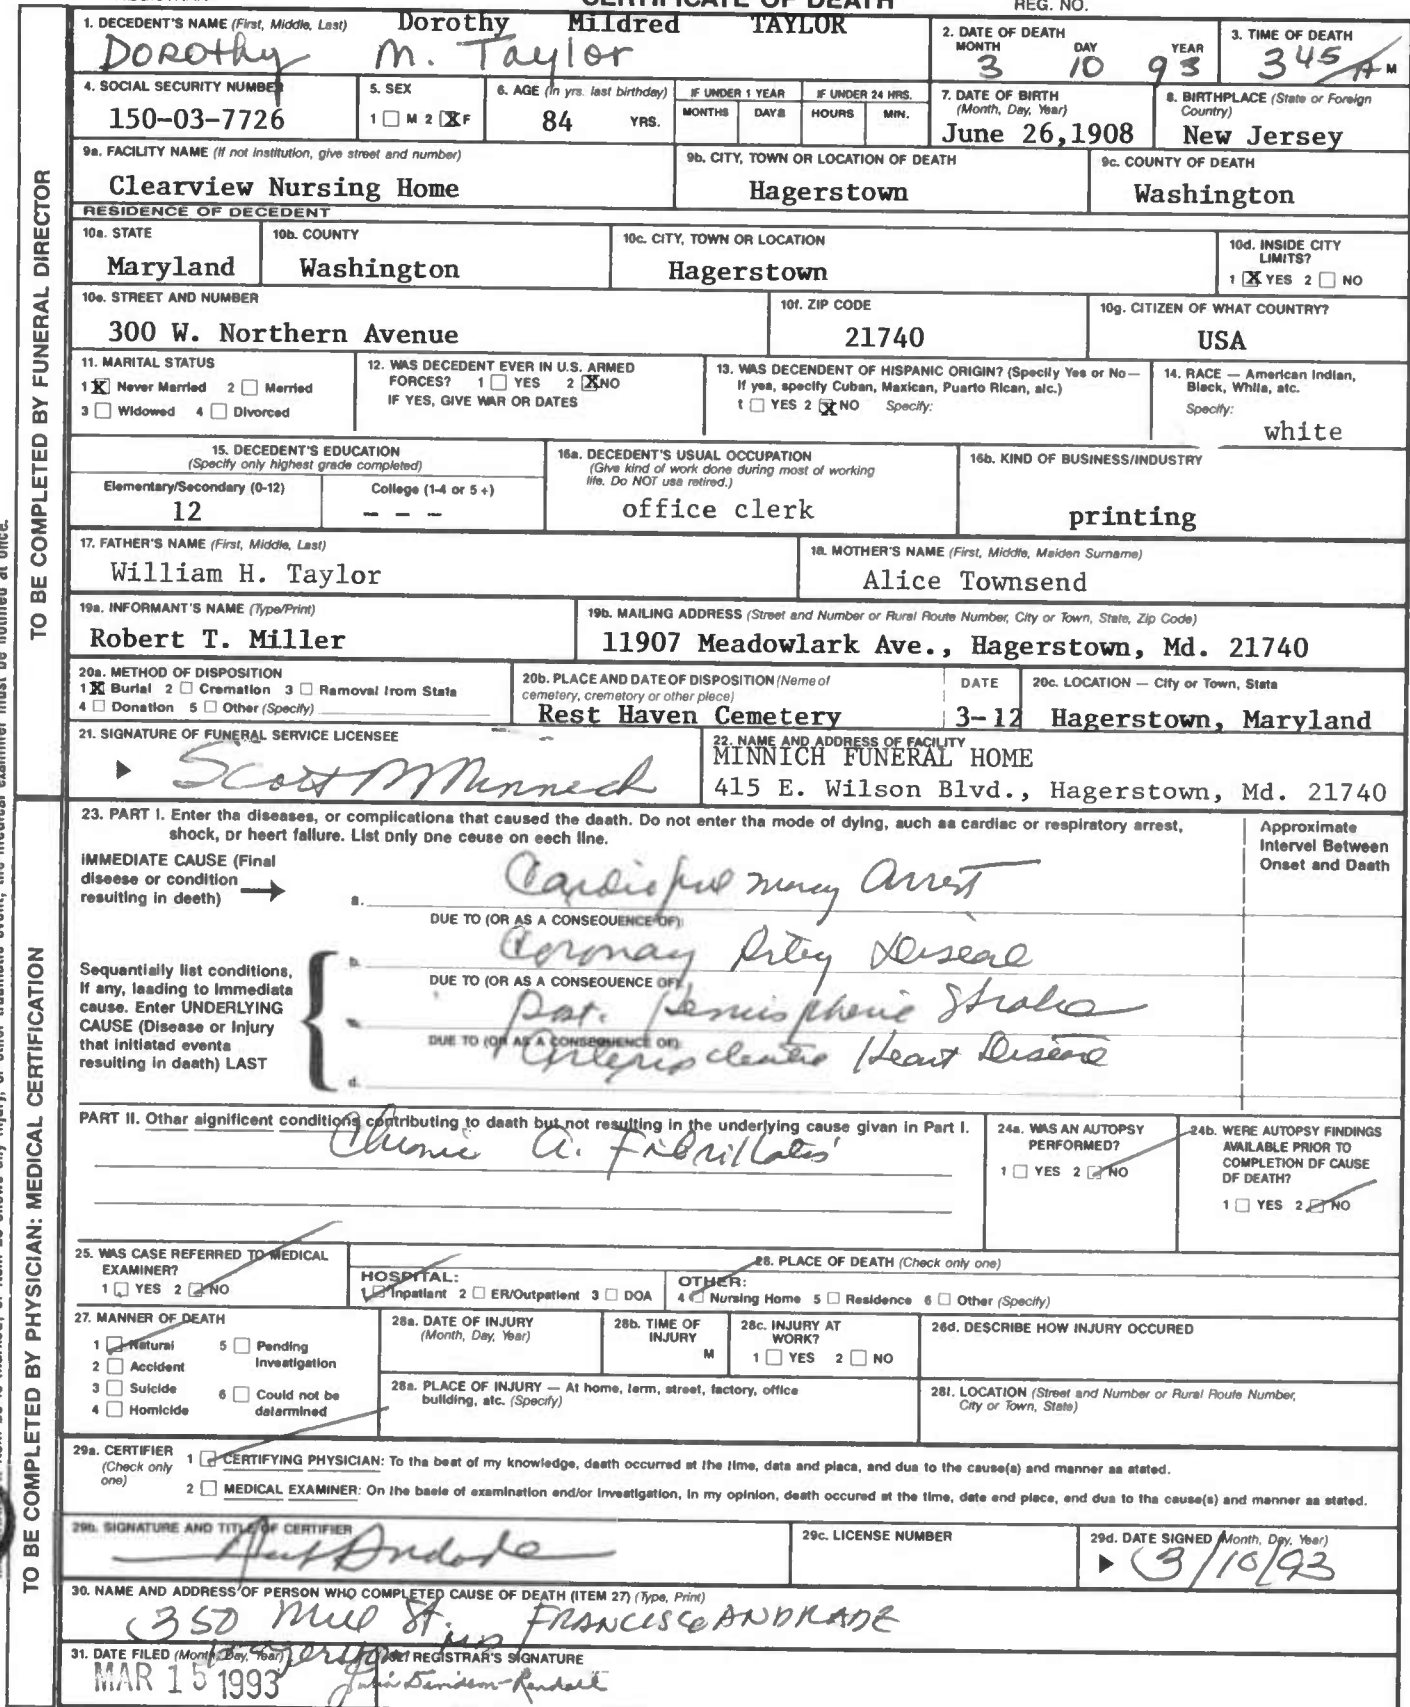 CERTIFICATE OF DEATH
REG. NO.
TO BE COMPLETED BY FUNERAL DIRECTOR
1. DECEDENT'S NAME (First, Middle, Last) Dorothy Mildred TAYLOR
Dorothy M. Taylor
2. DATE OF DEATH
MONTH DAY YEAR
3 10 93
3. TIME OF DEATH
3 45 A M
4. SOCIAL SECURITY NUMBER
150-03-7726
5. SEX
1 ☐ M 2 ☒ F
6. AGE (In yrs. last birthday)
84 YRS.
IF UNDER 1 YEAR
MONTHS DAYS
IF UNDER 24 HRS.
HOURS MIN.
7. DATE OF BIRTH
(Month, Day, Year)
June 26,1908
8. BIRTHPLACE (State or Foreign
Country)
New Jersey
9a. FACILITY NAME (If not institution, give street and number)
Clearview Nursing Home
9b. CITY, TOWN OR LOCATION OF DEATH
Hagerstown
9c. COUNTY OF DEATH
Washington
RESIDENCE OF DECEDENT
10a. STATE
Maryland
10b. COUNTY
Washington
10c. CITY, TOWN OR LOCATION
Hagerstown
10d. INSIDE CITY
LIMITS?
1 ☒ YES 2 ☐ NO
10e. STREET AND NUMBER
300 W. Northern Avenue
10f. ZIP CODE
21740
10g. CITIZEN OF WHAT COUNTRY?
USA
11. MARITAL STATUS
1 ☒ Never Married 2 ☐ Married
3 ☐ Widowed 4 ☐ Divorced
12. WAS DECEDENT EVER IN U.S. ARMED
FORCES? 1 ☐ YES 2 ☒ NO
IF YES, GIVE WAR OR DATES
13. WAS DECENDENT OF HISPANIC ORIGIN? (Specify Yes or No—
If yes, specify Cuban, Maxican, Puarto Rican, alc.)
1 ☐ YES 2 ☒ NO Specify:
14. RACE — American Indian,
Black, Whila, atc.
Specify:
white
15. DECEDENT'S EDUCATION
(Specify only highest grade completed)
Elementary/Secondary (0-12)
12
College (1-4 or 5+)
– – –
16a. DECEDENT'S USUAL OCCUPATION
(Give kind of work done during most of working
life. Do NOT use retired.)
office clerk
16b. KIND OF BUSINESS/INDUSTRY
printing
17. FATHER'S NAME (First, Middle, Last)
William H. Taylor
18. MOTHER'S NAME (First, Middle, Maiden Surname)
Alice Townsend
19a. INFORMANT'S NAME (Type/Print)
Robert T. Miller
19b. MAILING ADDRESS (Street and Number or Rural Route Number, City or Town, State, Zip Code)
11907 Meadowlark Ave., Hagerstown, Md. 21740
20a. METHOD OF DISPOSITION
1 ☒ Burial 2 ☐ Cremation 3 ☐ Ramoval Irom Stata
4 ☐ Donation 5 ☐ Other (Specify)
20b. PLACE AND DATE OF DISPOSITION (Name of
cemetery, cremetory or other plece)
Rest Haven Cemetery
DATE
3-12
20c. LOCATION — City or Town, Stata
Hagerstown, Maryland
21. SIGNATURE OF FUNERAL SERVICE LICENSEE
Scott M Minnich
22. NAME AND ADDRESS OF FACILITY
MINNICH FUNERAL HOME
415 E. Wilson Blvd., Hagerstown, Md. 21740
TO BE COMPLETED BY PHYSICIAN: MEDICAL CERTIFICATION
23. PART I. Enter tha diseases, or complications that caused the daath. Do not enter tha mode of dying, auch as cardiac or respiratory arrest,
shock, or heert failure. List only one ceuse on eech line.
Approximate
Intervel Between
Onset and Daath
IMMEDIATE CAUSE (Final
diseese or condition
resulting in deeth)
a. Cardiopulmonary Arrest
DUE TO (OR AS A CONSEQUENCE OF):
Sequantially list conditions,
If any, laading to Immediata
cause. Enter UNDERLYING
CAUSE (Disease or Injury
that initiatad events
resulting in daath) LAST
b. Coronay Artey Disease
DUE TO (OR AS A CONSEQUENCE OF):
c. Post. Hemispheric Stroke
DUE TO (OR AS A CONSEQUENCE OF):
Heart Disease
d.
PART II. Othar aignificent conditions contributing to daath but not resulting in the underlying cause givan in Part I.
Chronic A. Fibrillatio
24a. WAS AN AUTOPSY
PERFORMED?
1 ☐ YES 2 ☑ NO
24b. WERE AUTOPSY FINDINGS
AVAILABLE PRIOR TO
COMPLETION OF CAUSE
OF DEATH?
1 ☐ YES 2 ☑ NO
25. WAS CASE REFERRED TO MEDICAL
EXAMINER?
1 ☐ YES 2 ☑ NO
26. PLACE OF DEATH (Check only one)
HOSPITAL:
1 ☑ Inpatiant 2 ☐ ER/Outpatient 3 ☐ DOA
OTHER:
4 ☑ Nursing Home 5 ☐ Residence 6 ☐ Other (Specify)
27. MANNER OF DEATH
1 ☑ Natural 5 ☐ Pending
Investigation
2 ☐ Accident
3 ☐ Suicide 6 ☐ Could not be
datarmined
4 ☐ Homicide
28a. DATE OF INJURY
(Month, Day, Year)
28b. TIME OF
INJURY
M
28c. INJURY AT
WORK?
1 ☐ YES 2 ☐ NO
28d. DESCRIBE HOW INJURY OCCURED
28e. PLACE OF INJURY — At home, larm, street, factory, office
building, atc. (Specify)
28f. LOCATION (Street and Number or Rural Route Number,
City or Town, State)
29a. CERTIFIER
(Check only
one)
1 ☑ CERTIFYING PHYSICIAN: To tha beat of my knowledge, daath occurred at the lime, data and placa, and dua to the cause(a) and manner aa atated.
2 ☐ MEDICAL EXAMINER: On lhe baele of examination end/or Inveatlgation, in my opinion, death occured at the time, date end place, end dua to tha cause(s) and manner aa stated.
29b. SIGNATURE AND TITLE OF CERTIFIER
Andrade
29c. LICENSE NUMBER
29d. DATE SIGNED (Month, Day, Year)
3/10/93
30. NAME AND ADDRESS OF PERSON WHO COMPLETED CAUSE OF DEATH (ITEM 27) (Type, Print)
350 Mill St. FRANCISCO ANDRADE
Hagerstown
31. DATE FILED (Month, Day, Year)
MAR 15 1993
32. REGISTRAR'S SIGNATURE
Julia Davidson-Randall